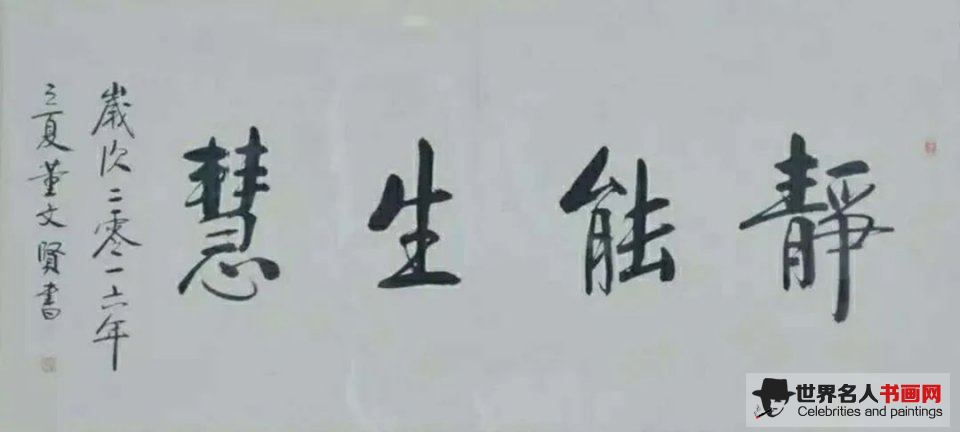 靜能生慧
歲次二零一六年
之夏董文賢書
世界名人书画网
Celebrities and paintings